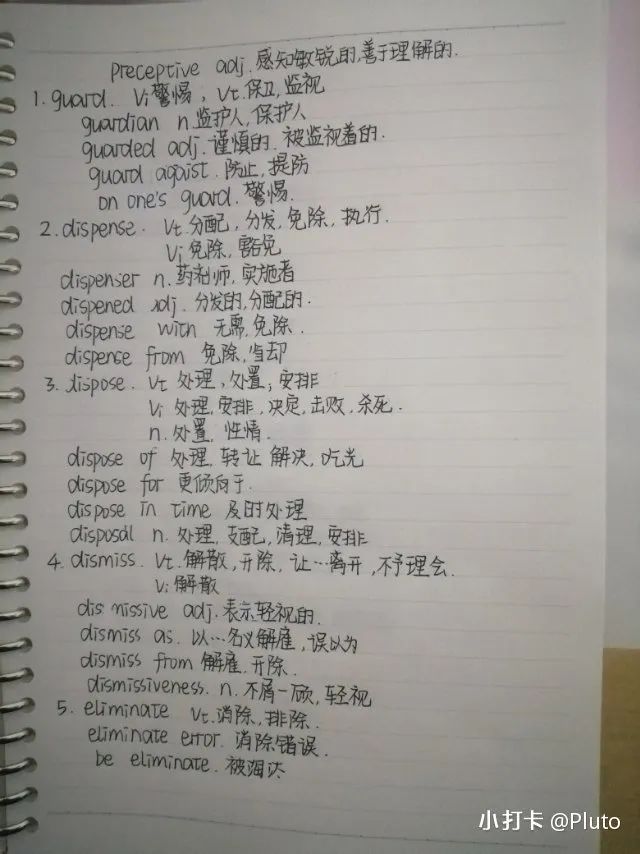 preceptive adj. 感知敏锐的,善于理解的.
1. guard. Vi 警惕, Vt.保卫,监视
guardian n.监护人,保护人
guarded adj.谨慎的.被监视着的.
guard agaist. 防止,提防
on one's guard. 警惕.
2. dispense. Vt.分配,分发,免除,执行.
Vi 免除,豁免
dispenser n.药剂师,实施者
dispened adj. 分发的,分配的.
dispense with 无需,免除.
dispense from 免除,省却
3. dispose. Vt 处理,处置;安排
Vi 处理,安排,决定,击败,杀死.
n.处置,性情.
dispose of 处理,转让 解决,吃光
dispose for 更倾向于.
dispose in time 及时处理
disposal n. 处理,支配,清理,安排
4. dismiss. Vt.解散,开除,让…离开,不予理会.
Vi 解散
dismissive adj.表示轻视的.
dismiss as. 以…名义解雇,误以为
dismiss from 解雇.开除.
dismissiveness. n.不屑一顾,轻视
5. eliminate Vt.消除,排除.
eliminate error.消除错误.
be eliminate.被淘汰
小打卡 @Pluto